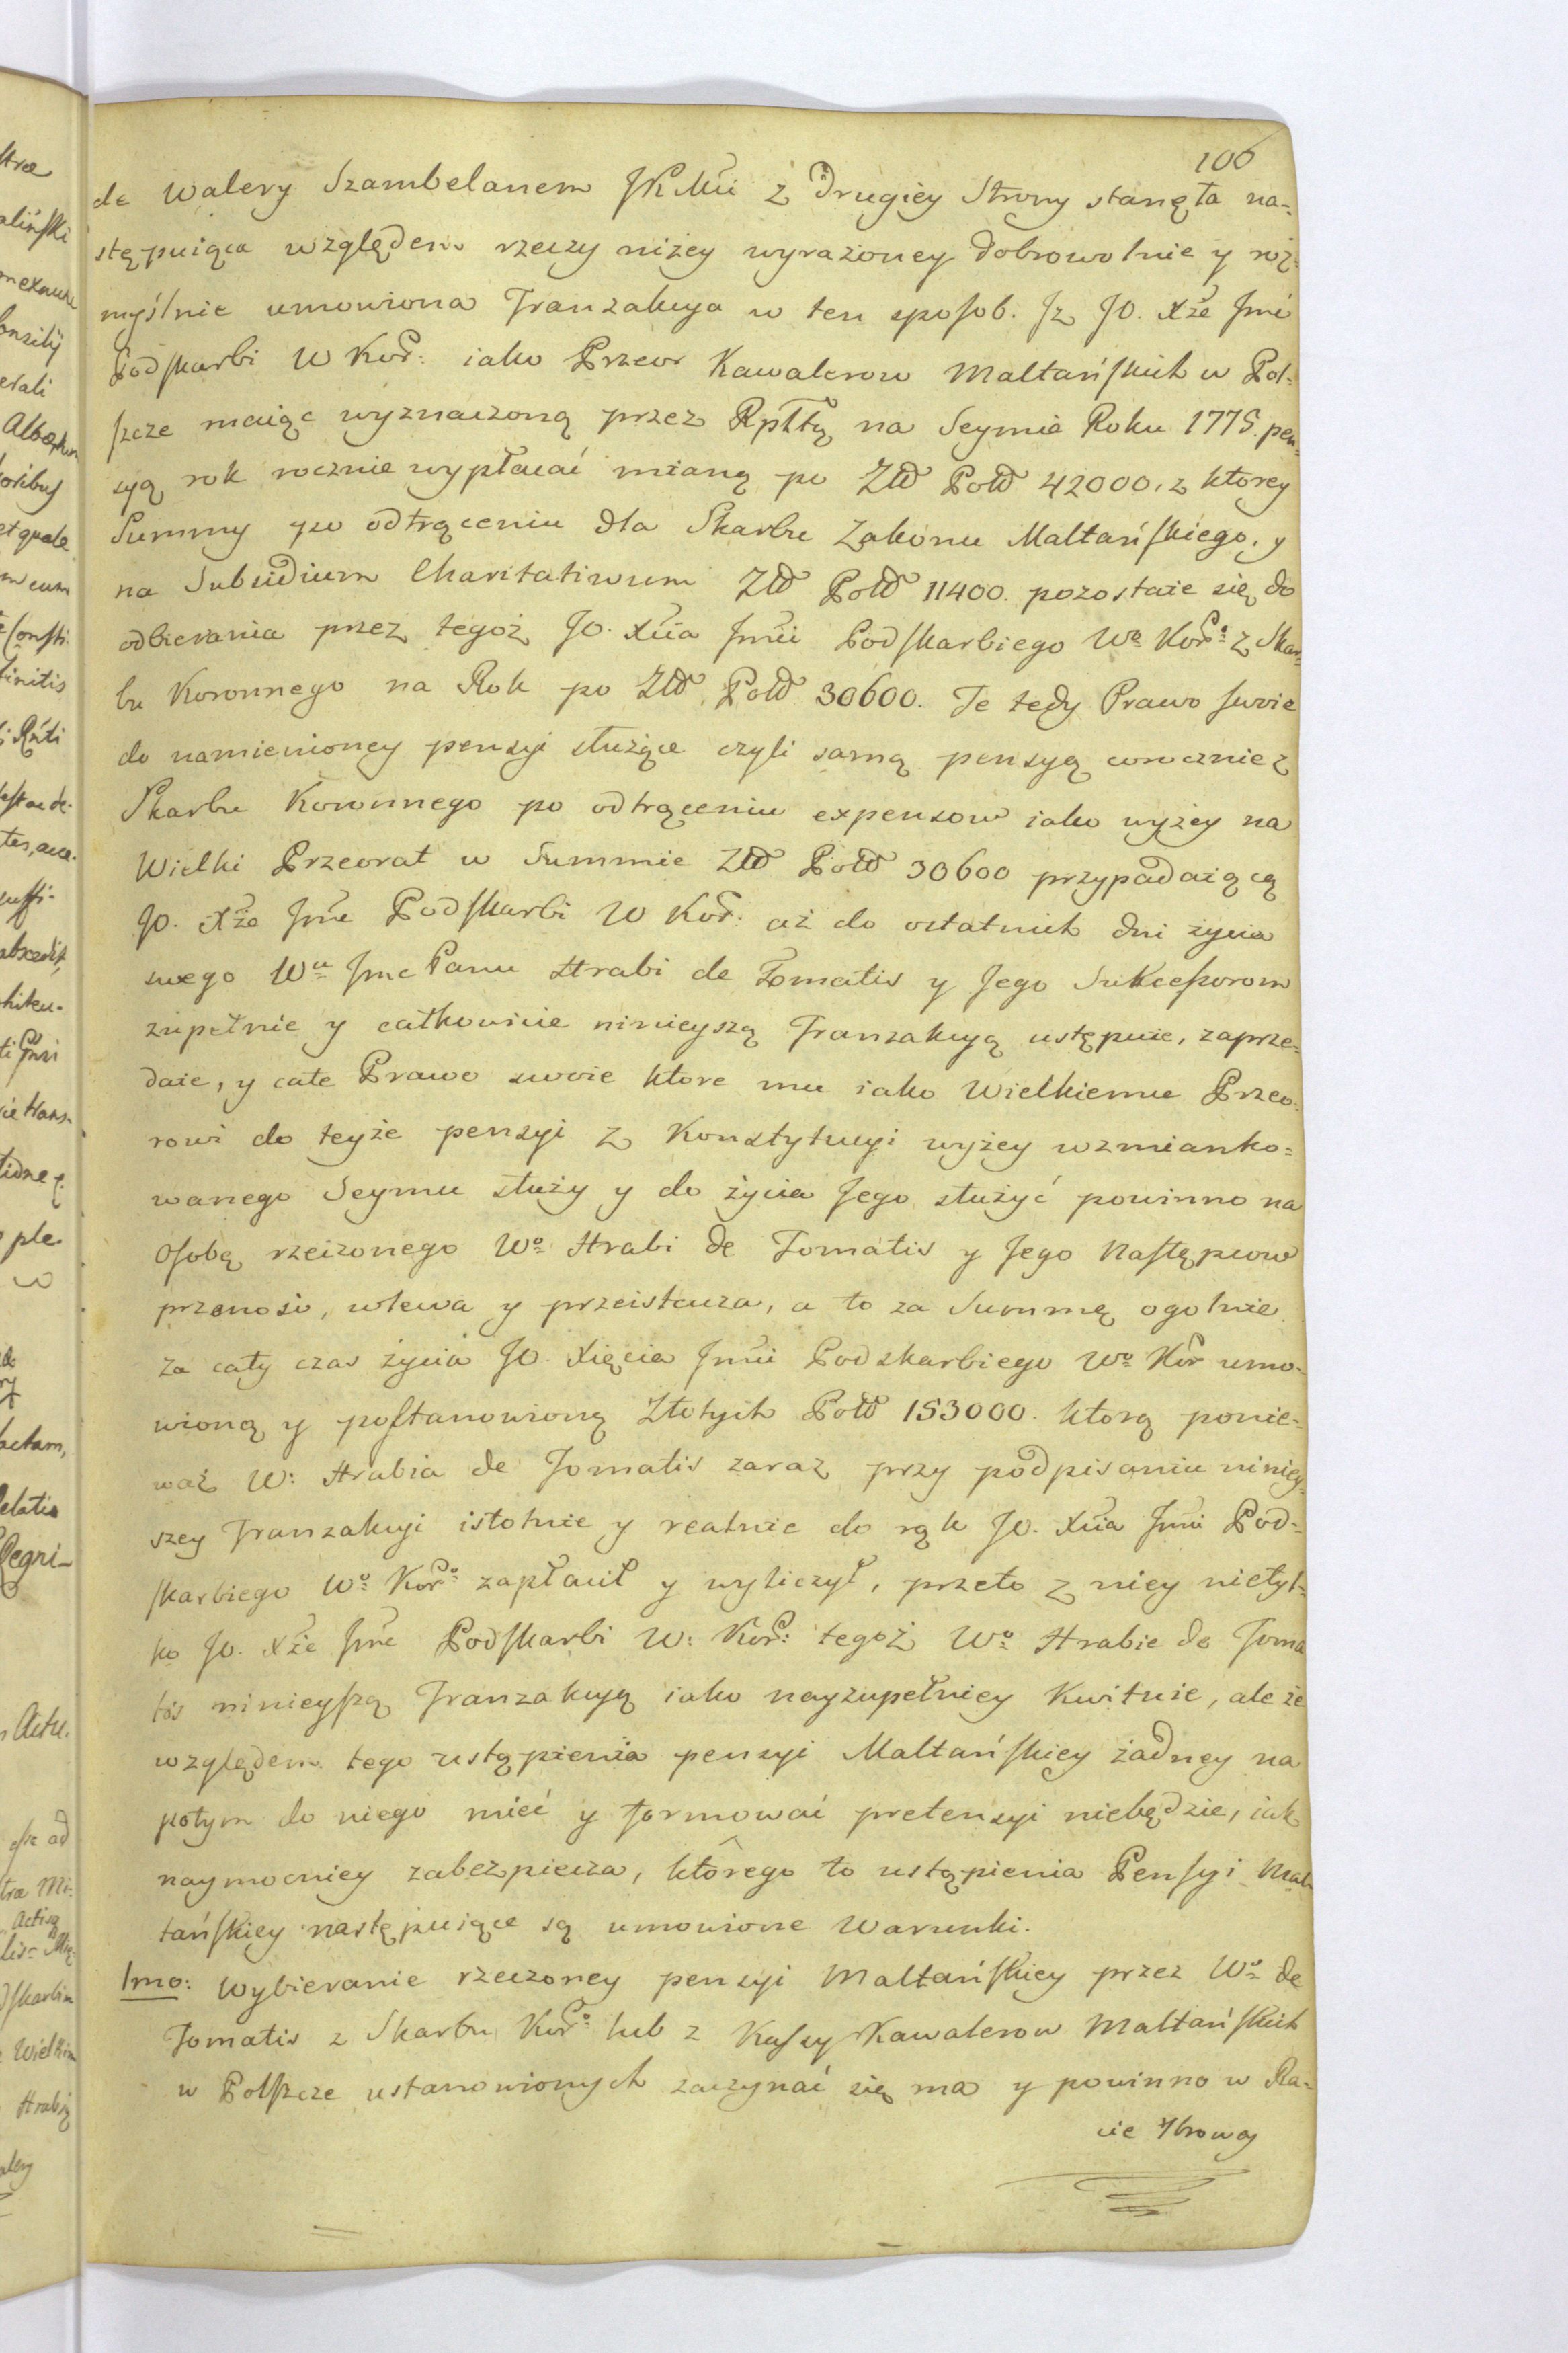 106
de Walery Szambelanem JKMci z Drugiey Strony stanęła na=
stępuiąca względem rzeczy niżey wyrażoney dobrowolnie y roz=
myślnie umowiona Tranzakcya w ten sposob. Jż JO. Xże Jmć
Podskarbi W Kor: iako Przeor Kawalerow Maltańskich w Pol=
szcze maiąc wyznaczoną przez Rpltę na Seymie Roku 1775. pen=
syą rok rocznie wypłacać mianą po Złł Poll 42000, z ktorey
Summy po odtrąceniu dla Skarbu Zakonu Maltańskiego, y
na Subsidium Charitativum Złł Poll 11400. pozostaie się do
odbierania przez tegoż JO. Xcia Jmci Podskarbiego Wo Koro: z Skar=
bu Koronnego na Rok po Złł Poll 30600. Te tedy Prawo swoie
do namienioney pensyi służące czyli samą pensyą corocznie z
Skarbu Koronnego po odtrąceniu expensow iako wyżey na
Wielki Przeorat w Summie Złł Poll 30600 przypadaiącą
JO. Xże Jmć Podskarbi W Kor: aż do ostatnich dni życia
swego Wu Jmc Panu Hrabi de Tomatis y Jego Sukcessorom
zupełnie y całkowicie ninieyszą Tranzakcyą ustępuie, zaprze=
daie, y całe Prawo swoie ktore mu iako Wielkiemu Przeo=
rowi do teyże pensyi z Konstytucyi wyżey wzmianko=
wanego Seymu służy y do życia Jego służyć powinno na
Osobę rzeczonego Wo Hrabi de Tomatis y Jego Następcow
przenosi, wlewa y przeistacza, a to za Summę ogolnie
za cały czas życia JO. Xięcia Jmci Podskarbiego Wo Kor umo=
wioną y postanowioną Złotych Poll 153000. ktorą ponie=
waż W: Hrabia de Tomatis zaraz przy podpisaniu niniey=
szey Tranzakcyi istotnie y realnie do rąk JO. Xcia Jmci Pod=
skarbiego Wo: Koro: zapłacił y wyliczył, przeto z niey nietyl=
ko JO. Xże Jmć Podskarbi W: Kor: tegoż Wo Hrabie de Toma
tis ninieyszą Tranzakcyą iako nayzupełniey Kwituie, ale że
względem tego ustąpienia pensyi Maltańskiey żadney na
potym do niego mieć y formować pretensyi niebędzie, iak
naymocniey zabezpiecza, ktôrego to ustąpienia Pensyi Mal=
tańskiey następuiące są umowione Warunki.
1mo: Wybieranie rzeczoney pensyi Maltańskiey przez Wo de
Tomatis z Skarbu Koro: lub z Kassy Kawalerow Maltańskich
w Polszcze ustanowionych zaczynać się ma y powinno w Ra=
cie